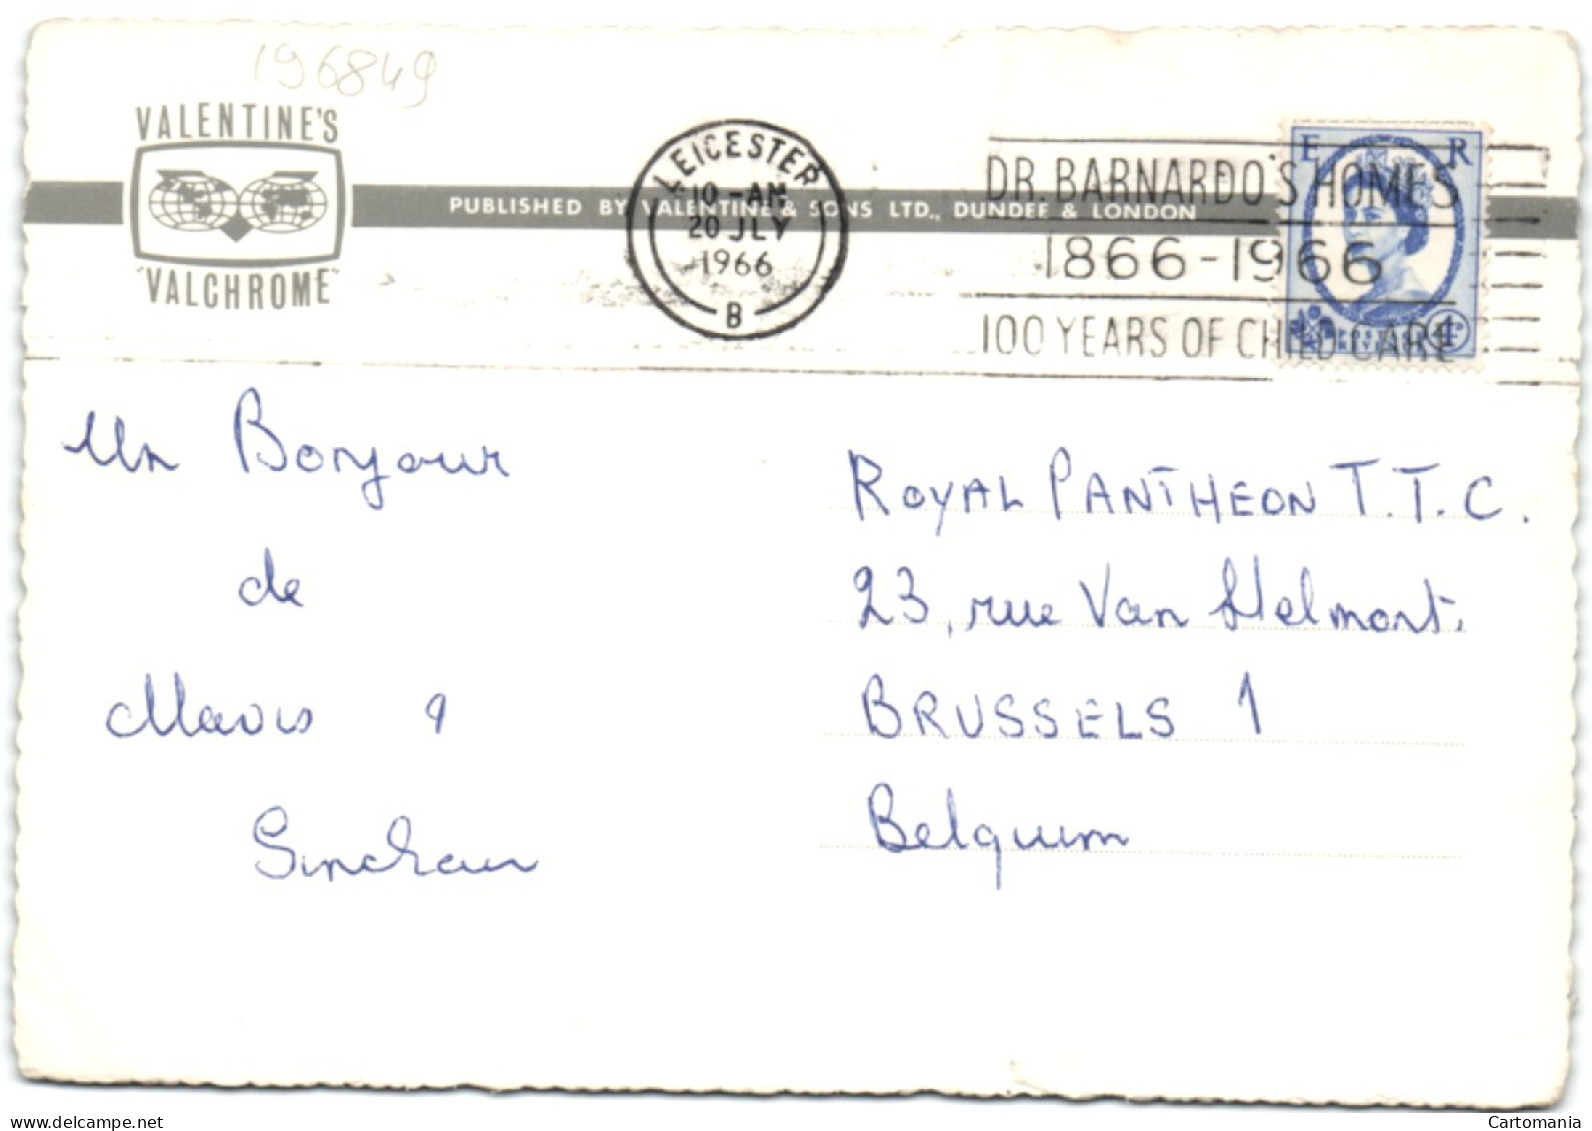 196849
VALENTINE'S
"VALCHROME"
PUBLISHED BY VALENTINE & SONS LTD., DUNDEE & LONDON
LEICESTER
10-AM
20 JLY
1966
B
DR. BARNARDO'S HOMES
1866-1966
100 YEARS OF CHILD CARE
E R
4D
Un Bonjour
de
Mavis
ROYAL PANTHEON T.T.C.
23, rue Van Helmont.
BRUSSELS 1
Belgium
Cartomania